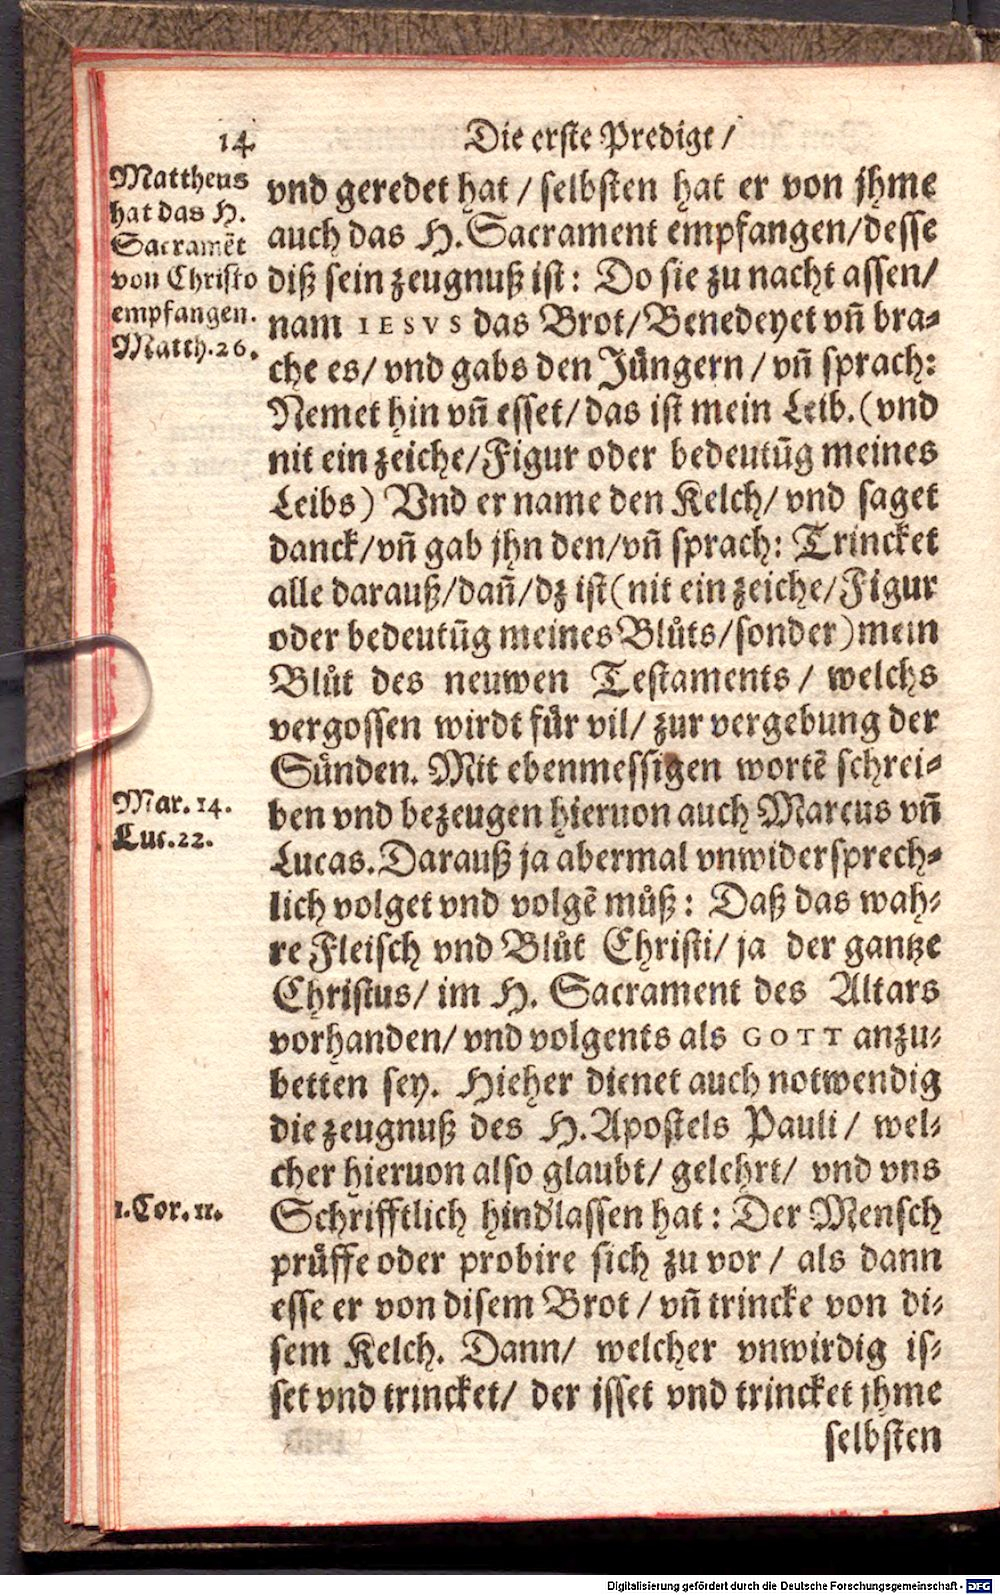 14
Die erste Predigt /
Mattheus
hat das H.
Sacramẽt
von Christo
empfangen.
Matth. 26.
vnd geredet hat / selbsten hat er von jhme
auch das H. Sacrament empfangen/desse
diß sein zeugnuß ist: Do sie zu nacht assen/
nam IESVS das Brot/Benedeyet vñ bra-
che es/ vnd gabs den Jüngern / vñ sprach:
Nemet hin vñ esset/das ist mein Leib.(vnd
nit ein zeiche/Figur oder bedeutũg meines
Leibs) Vnd er name den Kelch/ vnd saget
danck/vñ gab jhn den/vñ sprach: Trincket
alle darauß/dañ/dz ist(nit ein zeiche/Figur
oder bedeutũg meines Blůts/sonder)mein
Blůt des neuwen Testaments/ welchs
vergossen wirdt für vil/ zur vergebung der
Sünden. Mit ebenmessigen wortẽ schrei-
Mar. 14.
Luc. 22.
ben vnd bezeugen hieruon auch Marcus vñ
Lucas. Darauß ja abermal vnwidersprech-
lich volget vnd volgẽ můß: Daß das wah-
re Fleisch vnd Blůt Christi/ ja der gantze
Christus/ im H. Sacrament des Altars
vorhanden/ vnd volgents als GOTT anzu-
betten sey. Hieher dienet auch notwendig
die zeugnuß des H. Apostels Pauli/ wel-
cher hieruon also glaubt/ gelehrt/ vnd vns
1. Cor. 11.
Schrifftlich hind'lassen hat: Der Mensch
prüffe oder probire sich zu vor/ als dann
esse er von disem Brot/ vñ trincke von di-
sem Kelch. Dann/ welcher vnwirdig is-
set vnd trincket/ der isset vnd trincket jhme
selbsten
Digitalisierung gefördert durch die Deutsche Forschungsgemeinschaft - DFG